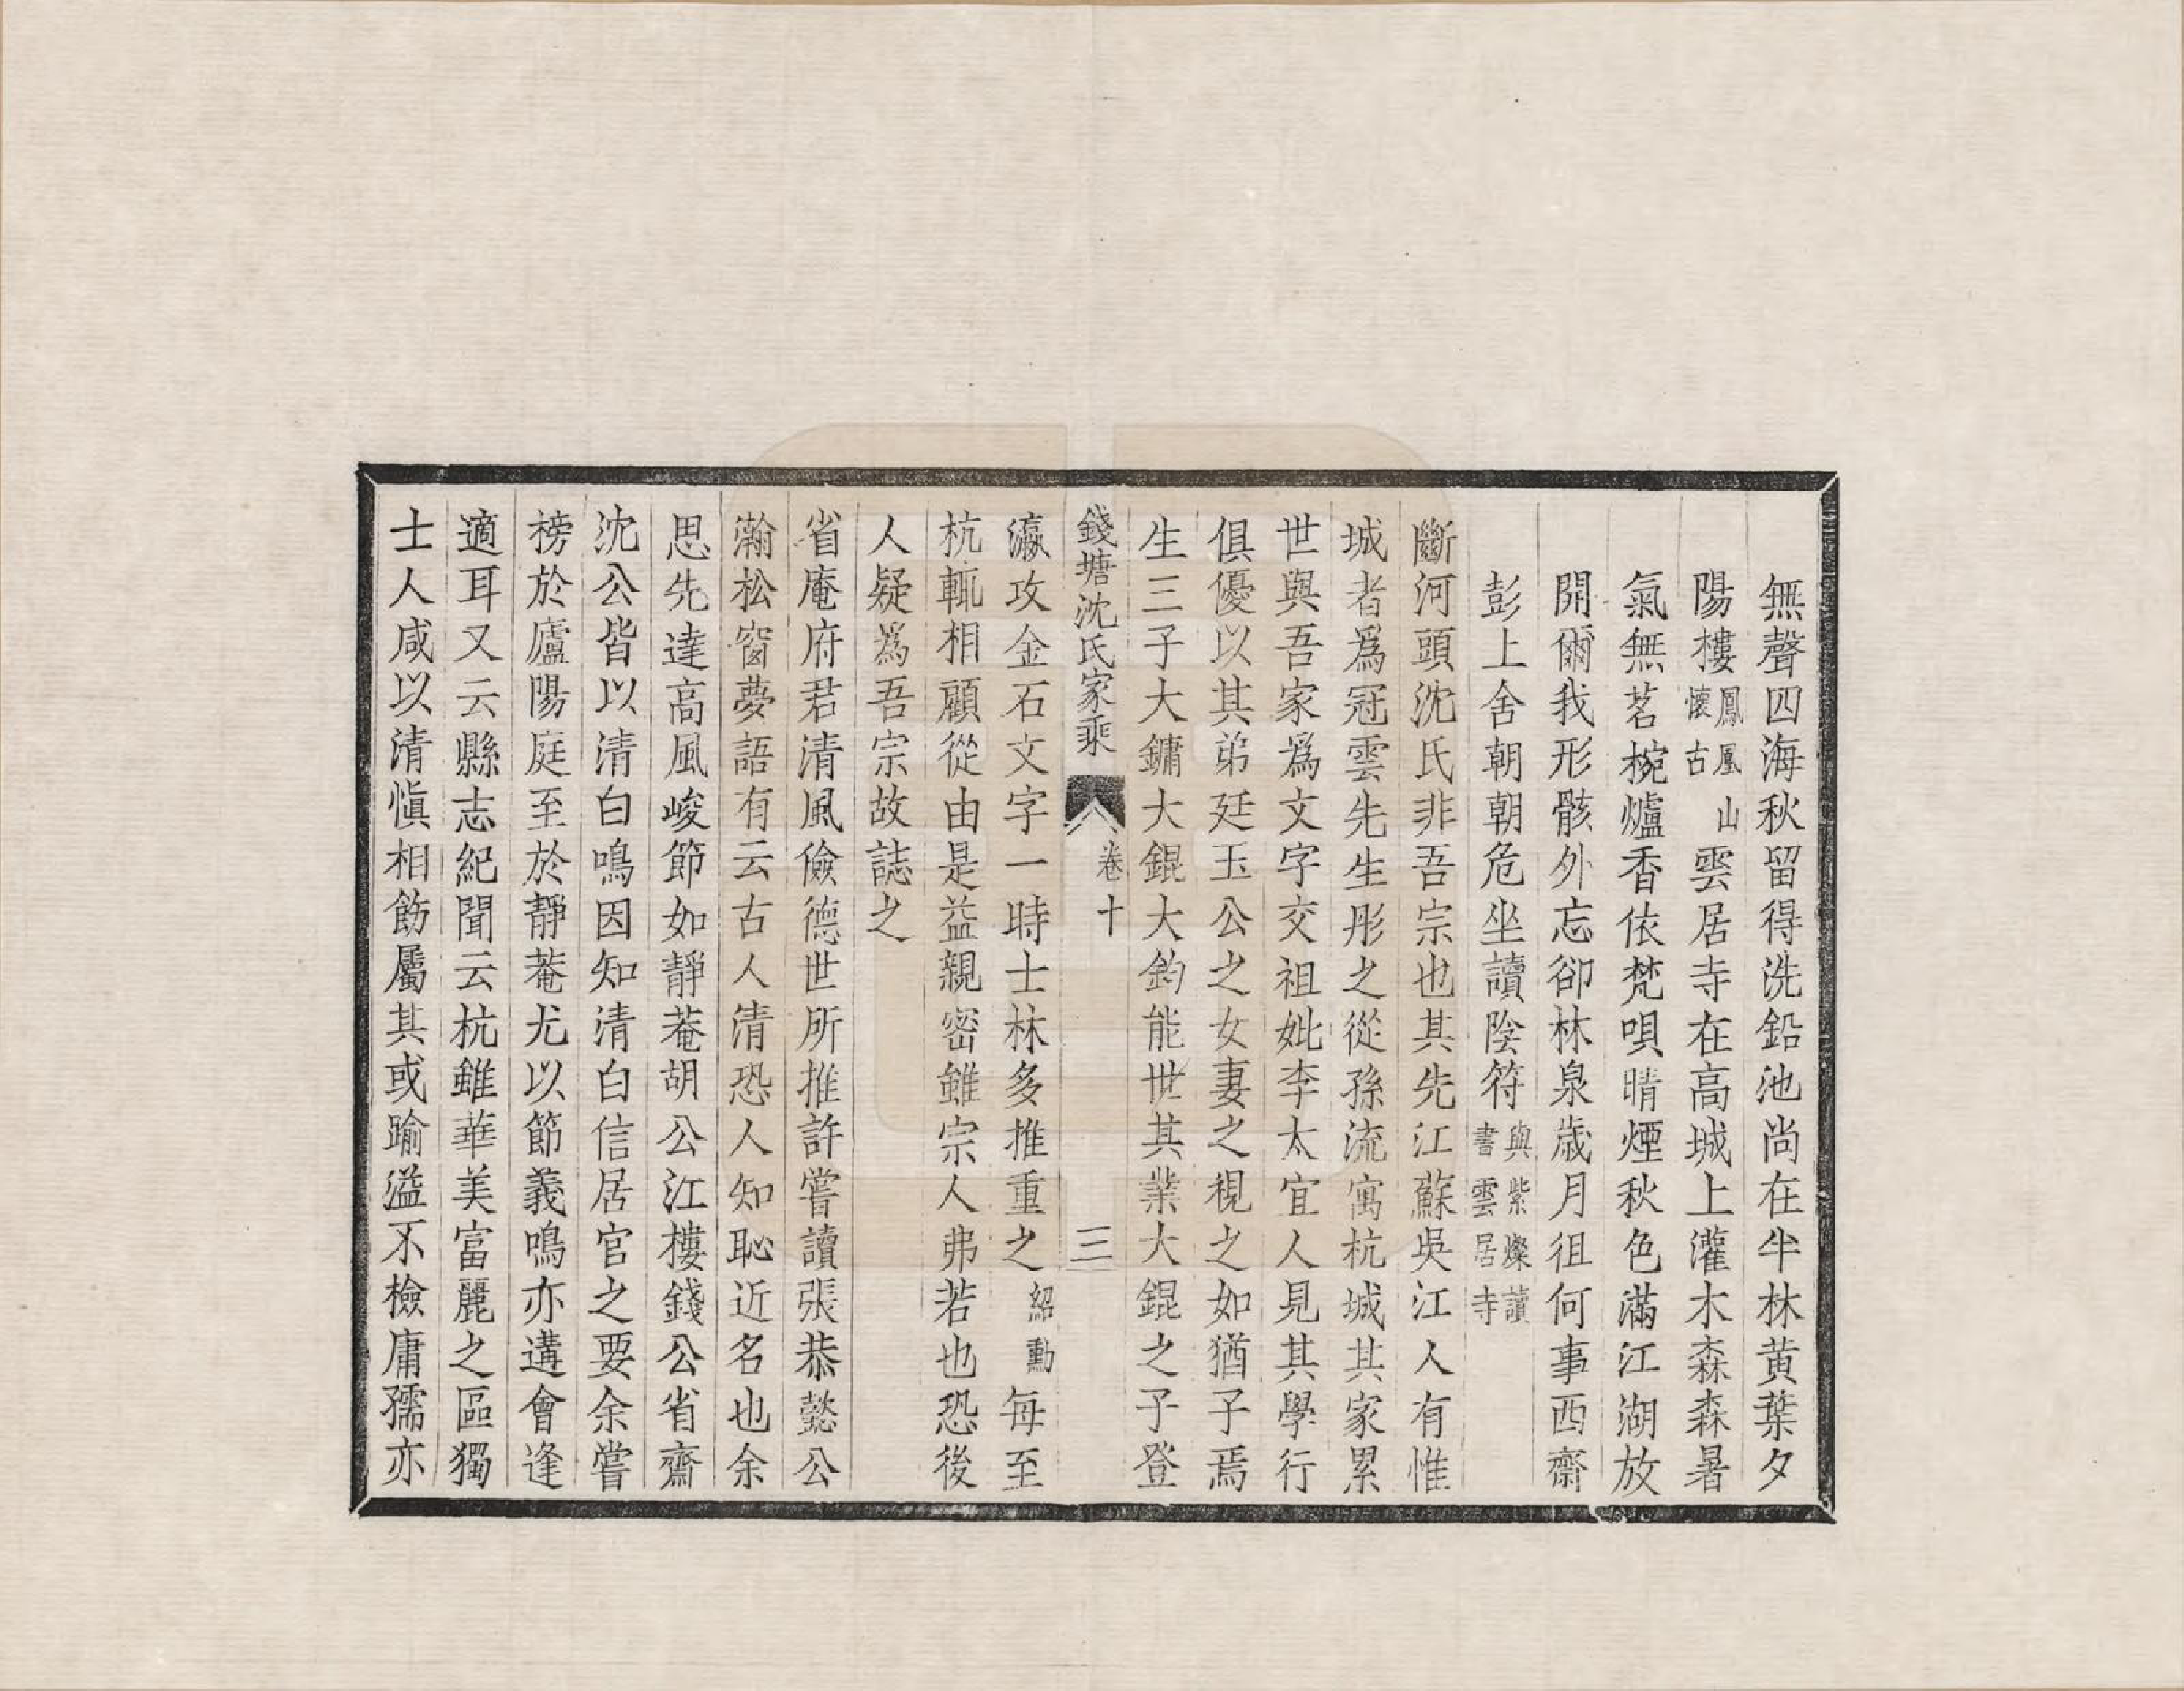 無聲四海秋留得洗鉛池尚在半林黃葉夕
陽樓鳳凰山懷古雲居寺在高城上灌木森森暑
氣無茗椀爐香依梵唄晴煙秋色滿江湖放
開爾我形骸外忘卻林泉歲月徂何事西齋
彭上舍朝朝危坐讀陰符與紫燦讀書雲居寺
斷河頭沈氏非吾宗也其先江蘇吳江人有惟
城者爲冠雲先生彤之從孫流寓杭城其家累
世與吾家爲文字交祖妣李太宜人見其學行
俱優以其弟廷玉公之女妻之視之如猶子焉
生三子大鏞大錕大鈞能世其業大錕之子登
錢塘沈氏家乘 卷十 三
瀛攻金石文字一時士林多推重之紹勳每至
杭輒相顧從由是益親密雖宗人弗若也恐後
人疑爲吾宗故誌之
省庵府君清風儉德世所推許嘗讀張恭懿公
瀚松窗夢語有云古人清恐人知恥近名也余
思先達高風峻節如靜菴胡公江樓錢公省齋
沈公皆以清白鳴因知清白信居官之要余嘗
榜於廬陽庭至於靜菴尤以節義鳴亦遘會逢
適耳又云縣志紀聞云杭雖華美富麗之區獨
士人咸以清愼相飭屬其或踰溢不檢庸孺亦